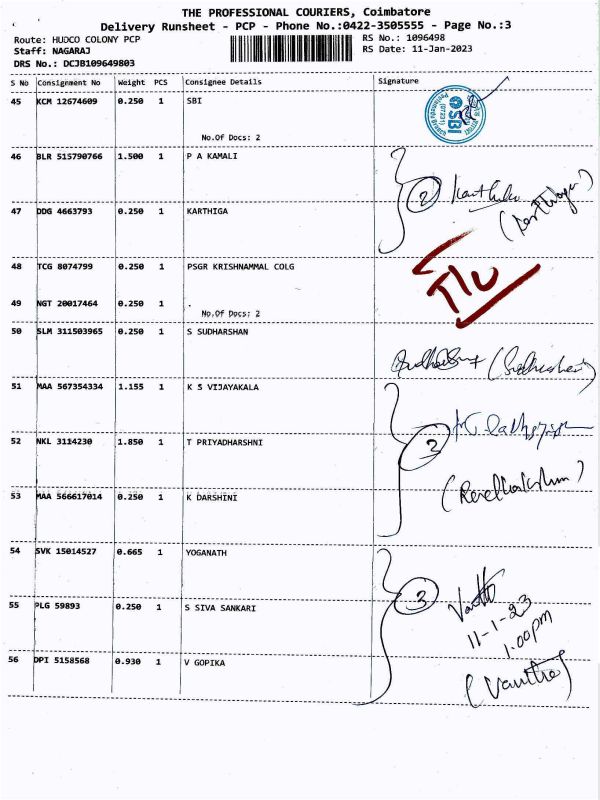 THE PROFESSIONAL COURIERS, Coimbatore
Delivery Runsheet - PCP - Phone No.:0422-3505555 - Page No.:3
Route: HUDCO COLONY PCP RS No.: 1096498
Staff: NAGARAJ RS Date: 11-Jan-2023
DRS No.: DCJB109649803
S No Consignment No Weight PCS Consignee Details Signature
45 KCM 12674609 0.250 1 SBI
SBI
No.Of Docs: 2
46 BLR 515790766 1.500 1 P A KAMALI
2
47 DDG 4663793 0.250 1 KARTHIGA
48 TCG 8074799 0.250 1 PSGR KRISHNAMMAL COLG
49 NGT 20017464 0.250 1 .
No.Of Docs: 2
50 SLM 311503965 0.250 1 S SUDHARSHAN
51 MAA 567354334 1.155 1 K S VIJAYAKALA
52 NKL 3114230 1.850 1 T PRIYADHARSHNI
3
53 MAA 566617014 0.250 1 K DARSHINI
54 SVK 15014527 0.665 1 YOGANATH
3
55 PLG 59893 0.250 1 S SIVA SANKARI
11-1-23
1.00pm
56 DPI 5158568 0.930 1 V GOPIKA